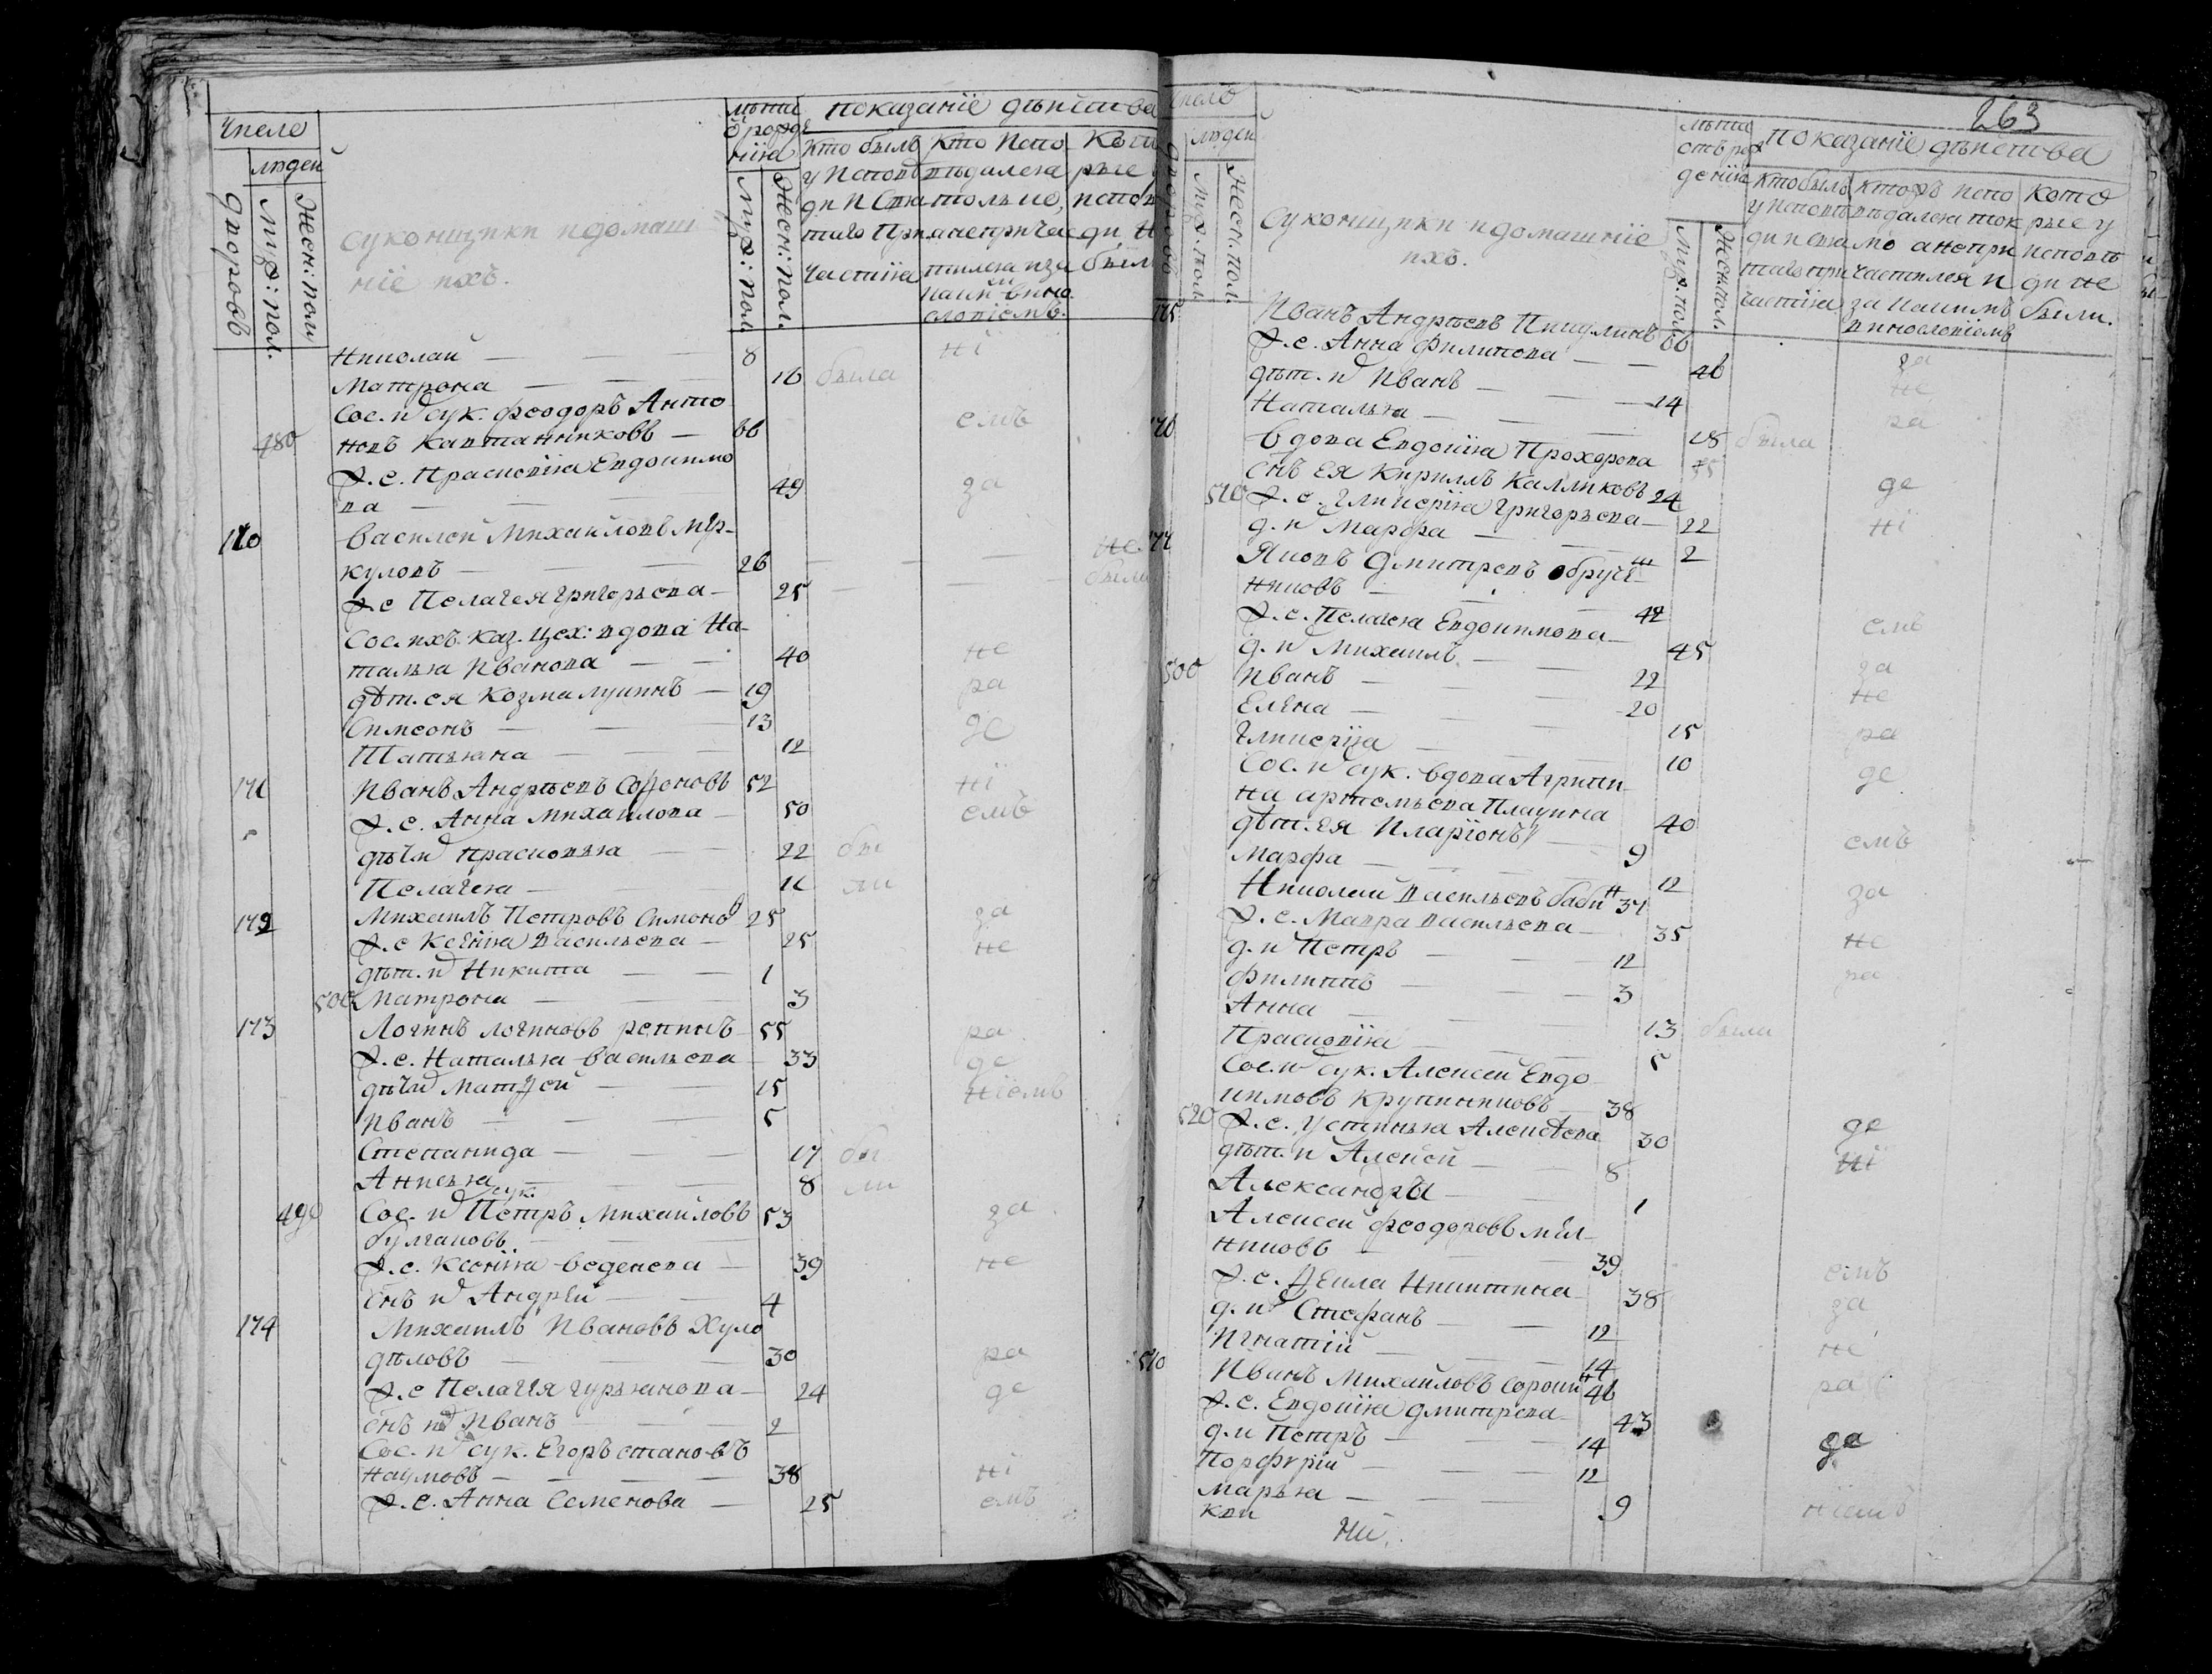 Числе
людей
дворовъ
Муж: пол.
Женс: полу
суконщики и домаш
ніе ихъ.
лѣта
ѿ рожде
нія
Муж: пол.
Женс: пол.
показаніе дѣйства
Кто былъ
у исповѣ
ди и Свя
таго При
частія
Кто Испо
вѣдался
только,
а не прича
стился и за
каким
винос
ловіемъ
Кото
рые
испов
ди, н
были
Николай — 8 ні
Матрона — 16 была
Сос. и сук. Феодоръ Анто
480 новъ Кавтанниковъ — 66 емъ
Ж. с. Прасковія Евдокимо
ва — 49 за
170 Василей Михайловъ Мер-
куловъ — 26 не
Ж. с Пелагея Григорьева — 25 были
Сос. ихъ. каз. цех: вдова На-
талья Иванова — 40 не
дѣт. ея Козма Лукинъ — 19 ра
Симеонъ — 13 де
Татьяна — 12
171 Иванъ Андрѣевъ Софоновъ 52 ні
Ж. с. Анна Михайлова — 50 емъ
дѣч. и Прасковья — 22 бы
Пелагея — 11 ли
172 Михаилъ Петровъ Симоно 25 за
Ж. с Ксенія Васильева — 25 не
дѣт. и Никита — 1
500 Матрона — 3
173 Логинъ Логиновъ Репинъ 55 ра
Ж. с. Наталья Васильева 33 де
дѣч. и Матфей — 15 ніемъ
Иванъ — 5
Степанида — 17 бы
Анисья — 8 ли
сук.
490 Сос. и Петръ Михайловъ 53 за
Булгаковъ —
Ж. с. Ксенія Веденева — 39 не
снъ и Андрей — 4
174 Михаилъ Ивановъ Худо
дѣловъ — 30 ра
Ж. с Пелагея Гурьянова — 24 де
снъ и Иванъ — 2
Сос. и сук. Егоръ Становъ
Наумовъ — 38 ні
Ж. с. Анна Семенова — 25 емъ
263
число
людей
дворовъ
Муж. пол.
Женс. пол.
Суконщики и домашніе
ихъ.
лѣта
отъ рож
денія
Муж. пол.
Женс. пол.
показаніе дѣйства
Кто былъ
у исповѣ
ди и свя
таго при
частія
ктожъ испо
вѣдался ток
мо а не при
частился и
за какимъ
винословіемъ
кото
рые у
исповѣ
ди не
были.
175 Иванъ Андрѣевъ Пикулинъ 66
Ж. с. Анна Филипова — 46 за
дѣт. и Иванъ — 14 не
Наталья — 18 была ра
176 вдова Евдокія Прохорова 55
Снъ Ея Кириллъ Калликовъ 24 де
510 Ж. с. Гликерія Григорьева — 22 ні
д. и Марфа — 2
177 Яковъ Дмитревъ Обруче
никовъ — 42
Ж. с. Пелагея Евдокимова — 45 емъ
д. и Михаилъ — 22 за
500 Иванъ — 20 не
Елена — 15 ра
Гликерія — 10 де
Сос. и сук. вдова Агрипи
на Артемьева 40
дѣт. Ея Иларіонъ — 9 емъ
Марфа — 12
Николай Васильевъ Баби 37 за
Ж. с. Мавра Васильева — 35 не
д. и Петръ — 12 ра
Филиппъ — 3
Анна — 13 были
Прасковія — 5
Сос. и сук. Алексей Евдо
кимовъ Крупениковъ — 38
520 Ж. с. Устинья Алексѣева 30 де
дѣт. и Алексей — 8 ні
Александръ — 1
Алексей Феодоровъ Мел
никовъ — 39
Ж. с. Фекла Никитина 38 емъ
д. и Стефанъ — 12 за
Игнатій — 14 не
510 Иванъ Михайловъ Сорокин 46 ра
Ж. с. Евдокія Дмитрева 43
д. и Петръ — 14 де
Порфирій — 12
Марья — 9 ніемъ
Кви
Ни.